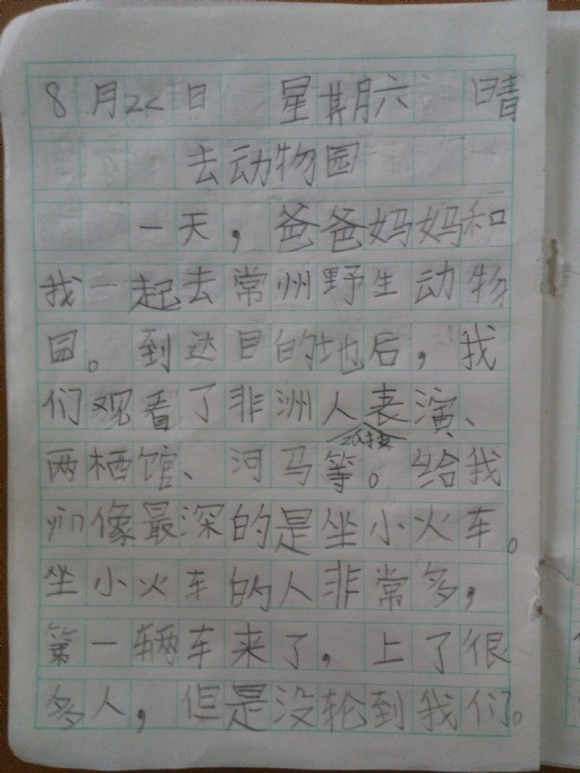 8月22日 星期六 晴
去动物园
一天，爸爸妈妈和
我一起去常州野生动物
园。到达目的地后，我
们观看了非洲人表演、
两栖馆、河马等。给我
印像最深的是坐小火车。
坐小火车的人非常多，
第一辆车来了，上了很
多人，但是没轮到我们。